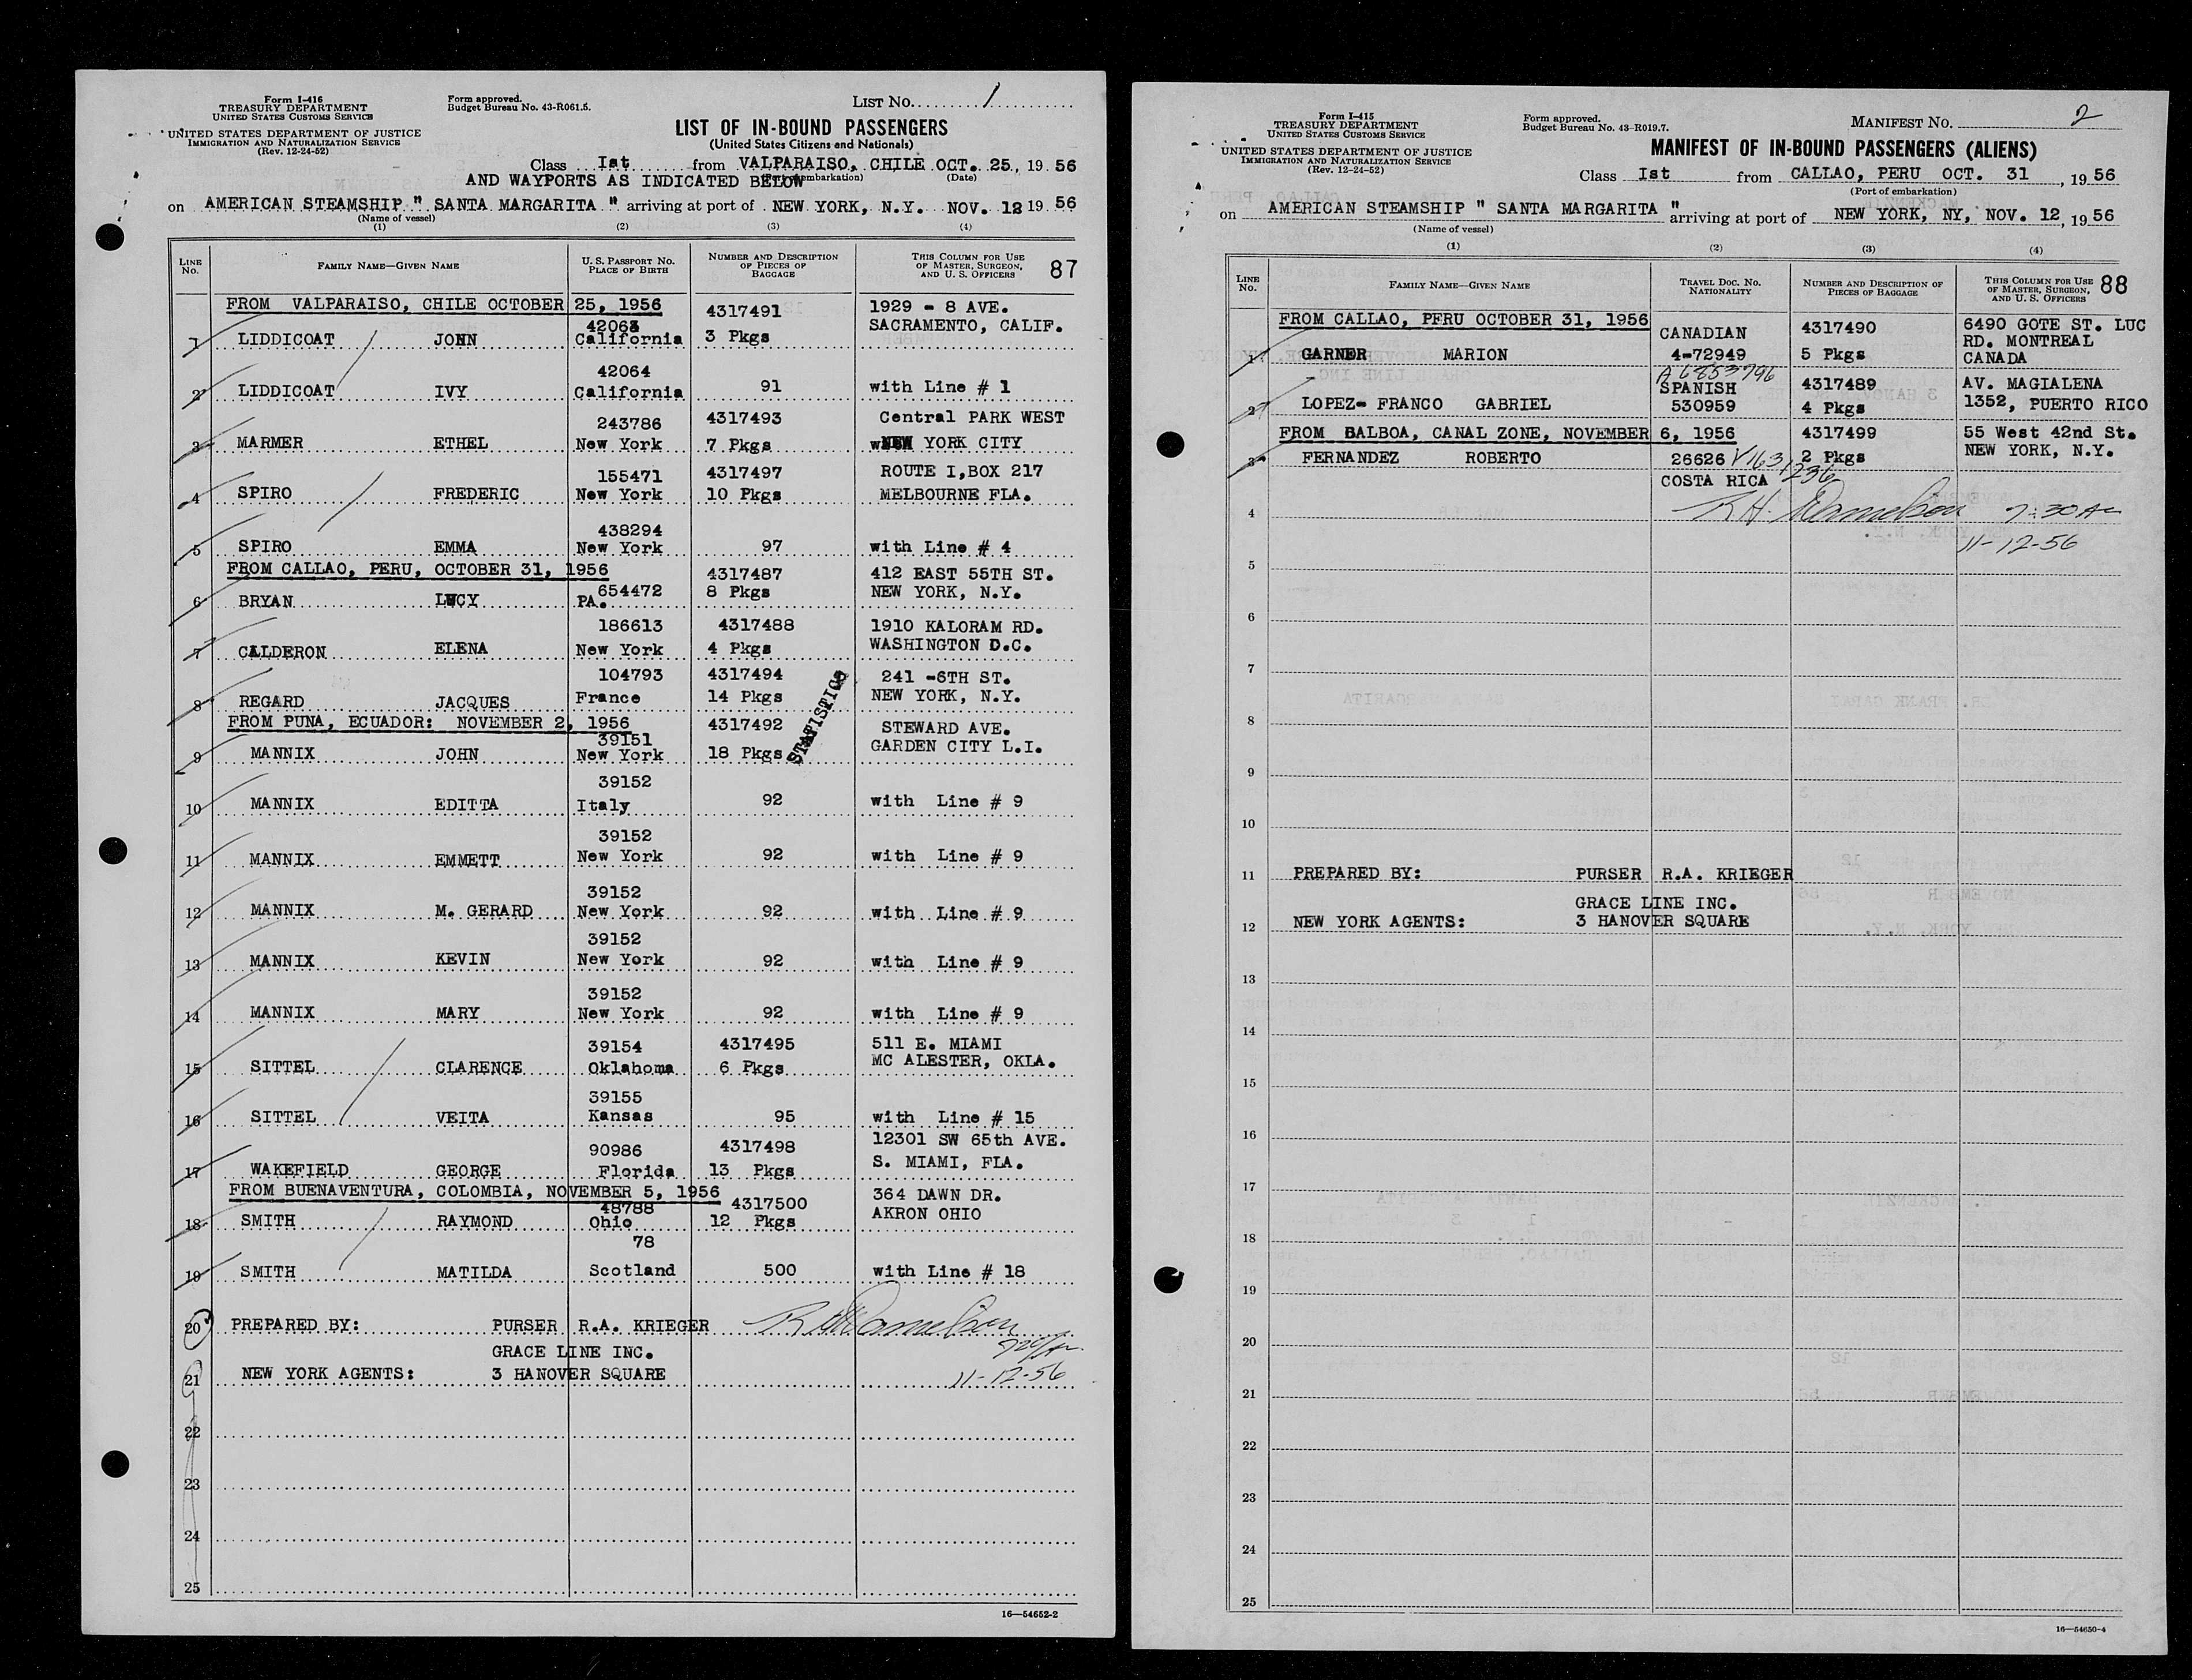 Form I-416
TREASURY DEPARTMENT
UNITED STATES CUSTOMS SERVICE
UNITED STATES DEPARTMENT OF JUSTICE
IMMIGRATION AND NATURALIZATION SERVICE
(Rev. 12-24-52)
Form approved.
Budget Bureau No. 43-R061.5.
LIST No. 1
LIST OF IN-BOUND PASSENGERS
(United States Citizens and Nationals)
Class Ist from VALPARAISO, CHILE OCT. 25, 19 56
(Date)
AND WAYPORTS AS INDICATED BELOW
on AMERICAN STEAMSHIP " SANTA MARGARITA " arriving at port of NEW YORK, N.Y. NOV. 12 19 56
(Name of vessel)
(1) (2) (3) (4)
LINE No. FAMILY NAME—GIVEN NAME U. S. PASSPORT NO. PLACE OF BIRTH NUMBER AND DESCRIPTION OF PIECES OF BAGGAGE THIS COLUMN FOR USE OF MASTER, SURGEON, AND U. S. OFFICERS 87
FROM VALPARAISO, CHILE OCTOBER 25, 1956 4317491 1929 - 8 AVE.
42063 SACRAMENTO, CALIF.
1 LIDDICOAT JOHN California 3 Pkgs
42064
2 LIDDICOAT IVY California 91 with Line # 1
243786 4317493 Central PARK WEST
3 MARMER ETHEL New York 7 Pkgs NEW YORK CITY
155471 4317497 ROUTE I,BOX 217
4 SPIRO FREDERIC New York 10 Pkgs MELBOURNE FLA.
438294
5 SPIRO EMMA New York 97 with Line # 4
FROM CALLAO, PERU, OCTOBER 31, 1956 4317487 412 EAST 55TH ST.
654472 8 Pkgs NEW YORK, N.Y.
6 BRYAN LUCY PA.
186613 4317488 1910 KALORAM RD.
7 CALDERON ELENA New York 4 Pkgs WASHINGTON D.C.
104793 4317494 241 -6TH ST.
8 REGARD JACQUES France 14 Pkgs NEW YORK, N.Y.
STATISTICS
FROM PUNA, ECUADOR: NOVEMBER 2, 1956 4317492 STEWARD AVE.
39151 GARDEN CITY L.I.
9 MANNIX JOHN New York 18 Pkgs
39152
10 MANNIX EDITTA Italy 92 with Line # 9
39152
11 MANNIX EMMETT New York 92 with Line # 9
39152
12 MANNIX M. GERARD New York 92 with Line # 9
39152
13 MANNIX KEVIN New York 92 with Line # 9
39152
14 MANNIX MARY New York 92 with Line # 9
39154 4317495 511 E. MIAMI
15 SITTEL CLARENCE Oklahoma 6 Pkgs MC ALESTER, OKLA.
39155
16 SITTEL VEITA Kansas 95 with Line # 15
90986 4317498 12301 SW 65th AVE.
17 WAKEFIELD GEORGE Florida 13 Pkgs S. MIAMI, FLA.
FROM BUENAVENTURA, COLOMBIA, NOVEMBER 5, 1956 4317500 364 DAWN DR.
48788 AKRON OHIO
18 SMITH RAYMOND Ohio 12 Pkgs
78
19 SMITH MATILDA Scotland 500 with Line # 18
20 PREPARED BY: PURSER R.A. KRIEGER
GRACE LINE INC.
21 NEW YORK AGENTS: 3 HANOVER SQUARE 11-12-56
22
23
24
25
16—54652-2
Form I-415
TREASURY DEPARTMENT
UNITED STATES CUSTOMS SERVICE
UNITED STATES DEPARTMENT OF JUSTICE
IMMIGRATION AND NATURALIZATION SERVICE
(Rev. 12-24-52)
Form approved.
Budget Bureau No. 43-R019.7.
MANIFEST No. 2
MANIFEST OF IN-BOUND PASSENGERS (ALIENS)
Class Ist from CALLAO, PERU OCT. 31, 19 56
(Port of embarkation)
on AMERICAN STEAMSHIP " SANTA MARGARITA " arriving at port of NEW YORK, NY, NOV. 12, 19 56
(Name of vessel)
(1) (2) (3) (4)
LINE No. FAMILY NAME—GIVEN NAME TRAVEL DOC. NO. NATIONALITY NUMBER AND DESCRIPTION OF PIECES OF BAGGAGE THIS COLUMN FOR USE OF MASTER, SURGEON, AND U. S. OFFICERS 88
FROM CALLAO, PERU OCTOBER 31, 1956 CANADIAN 4317490 6490 GOTE ST. LUC
RD. MONTREAL
1 GARNER MARION 4-72949 5 Pkgs CANADA
A6853796
SPANISH 4317489 AV. MAGIALENA
2 LOPEZ- FRANCO GABRIEL 530959 4 Pkgs 1352, PUERTO RICO
FROM BALBOA, CANAL ZONE, NOVEMBER 6, 1956 4317499 55 West 42nd St.
3 FERNANDEZ ROBERTO 26626 V1631236 2 Pkgs NEW YORK, N.Y.
COSTA RICA
4 7:30 Am
11-12-56
5
6
7
8
9
10
11 PREPARED BY: PURSER R.A. KRIEGER
GRACE LINE INC.
12 NEW YORK AGENTS: 3 HANOVER SQUARE
13
14
15
16
17
18
19
20
21
22
23
24
25
16—54650-4